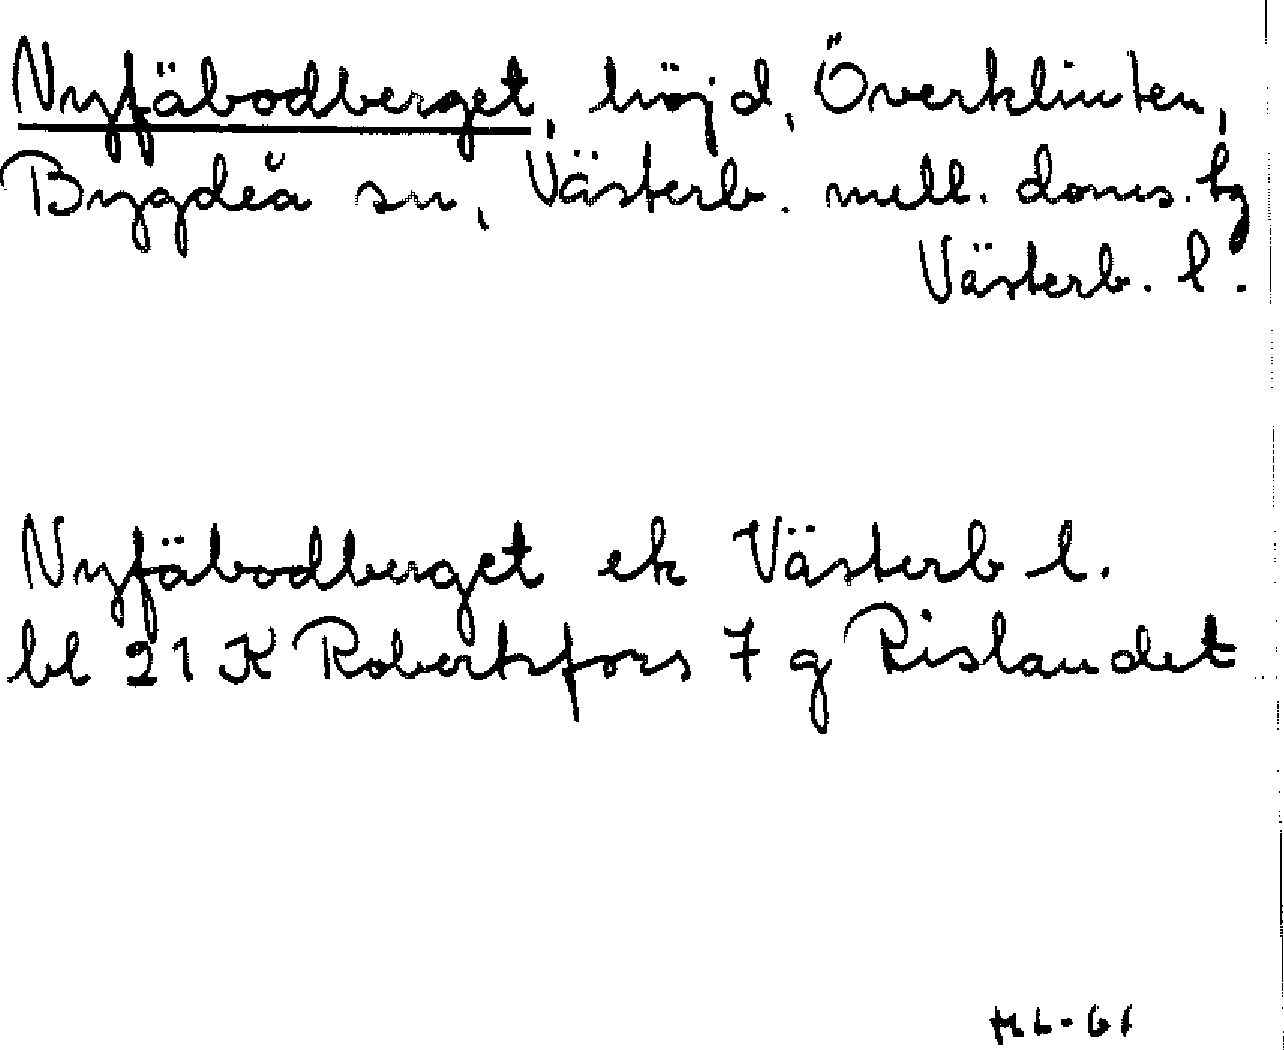 Nyfäbodberget, höjd, Överklinten,
Bygdeå sn, Västerb. mell. doms. tg
Västerb. l.
Nyfäbodberget ek Västerb l.
bl 21 K Robertsfors 7 g Rislandet